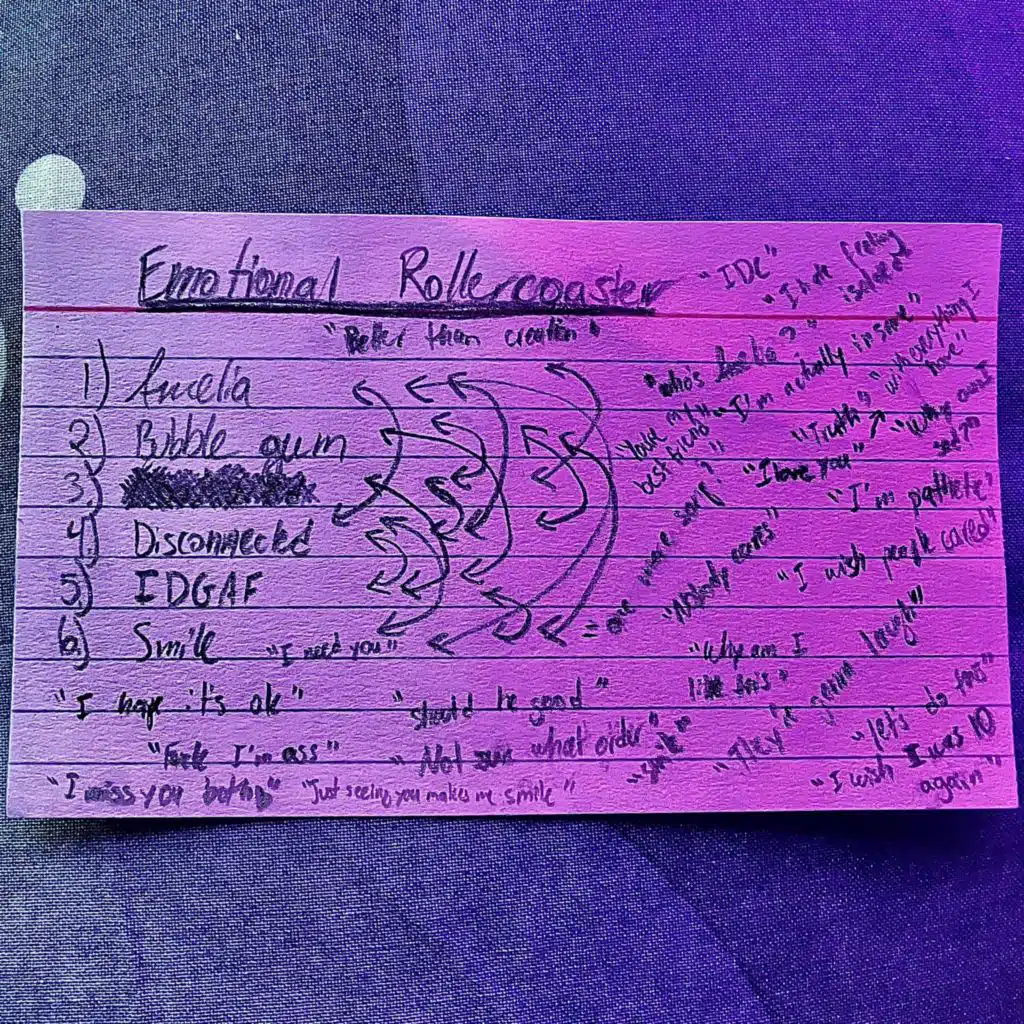 Emotional Rollercoaster
"Better than creation"
1) Amelia
2) Bubble gum
3)
4) Disconnected
5) IDGAF
6) Smile
"I need you"
"I hope it's ok"
"should be good"
"Fuck I'm ass"
"Not sure what order"
"I miss you both"
"Just seeing you makes me smile"
"IDC"
"I hate feeling
isolated"
"who's Amelia?"
"I'm actually insane"
"love my
best friend"
"Truth"
"with everything I
have"
"I love you"
"Why am I
"I'm pathetic"
= one more song?
"Nobody cares"
"I wish people cared"
"Why am I
like this"
"They're gonna laugh"
"let's do this"
"I wish I was 10
again"